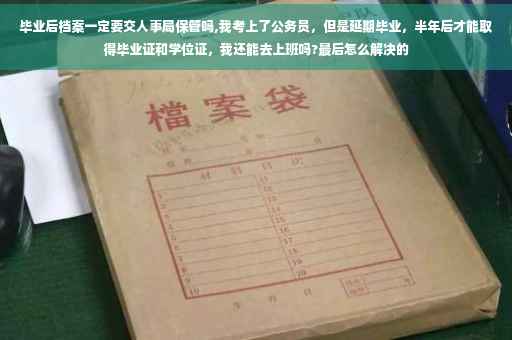 毕业后档案一定要交人事局保管吗,我考上了公务员，但是延期毕业，半年后才能取
得毕业证和学位证，我还能去上班吗?最后怎么解决的
檔案袋
材料目次
1 11
2 12
3 13
4 14
5 15
6 16
7 17
8 18
9 19
10 20
年 月 日